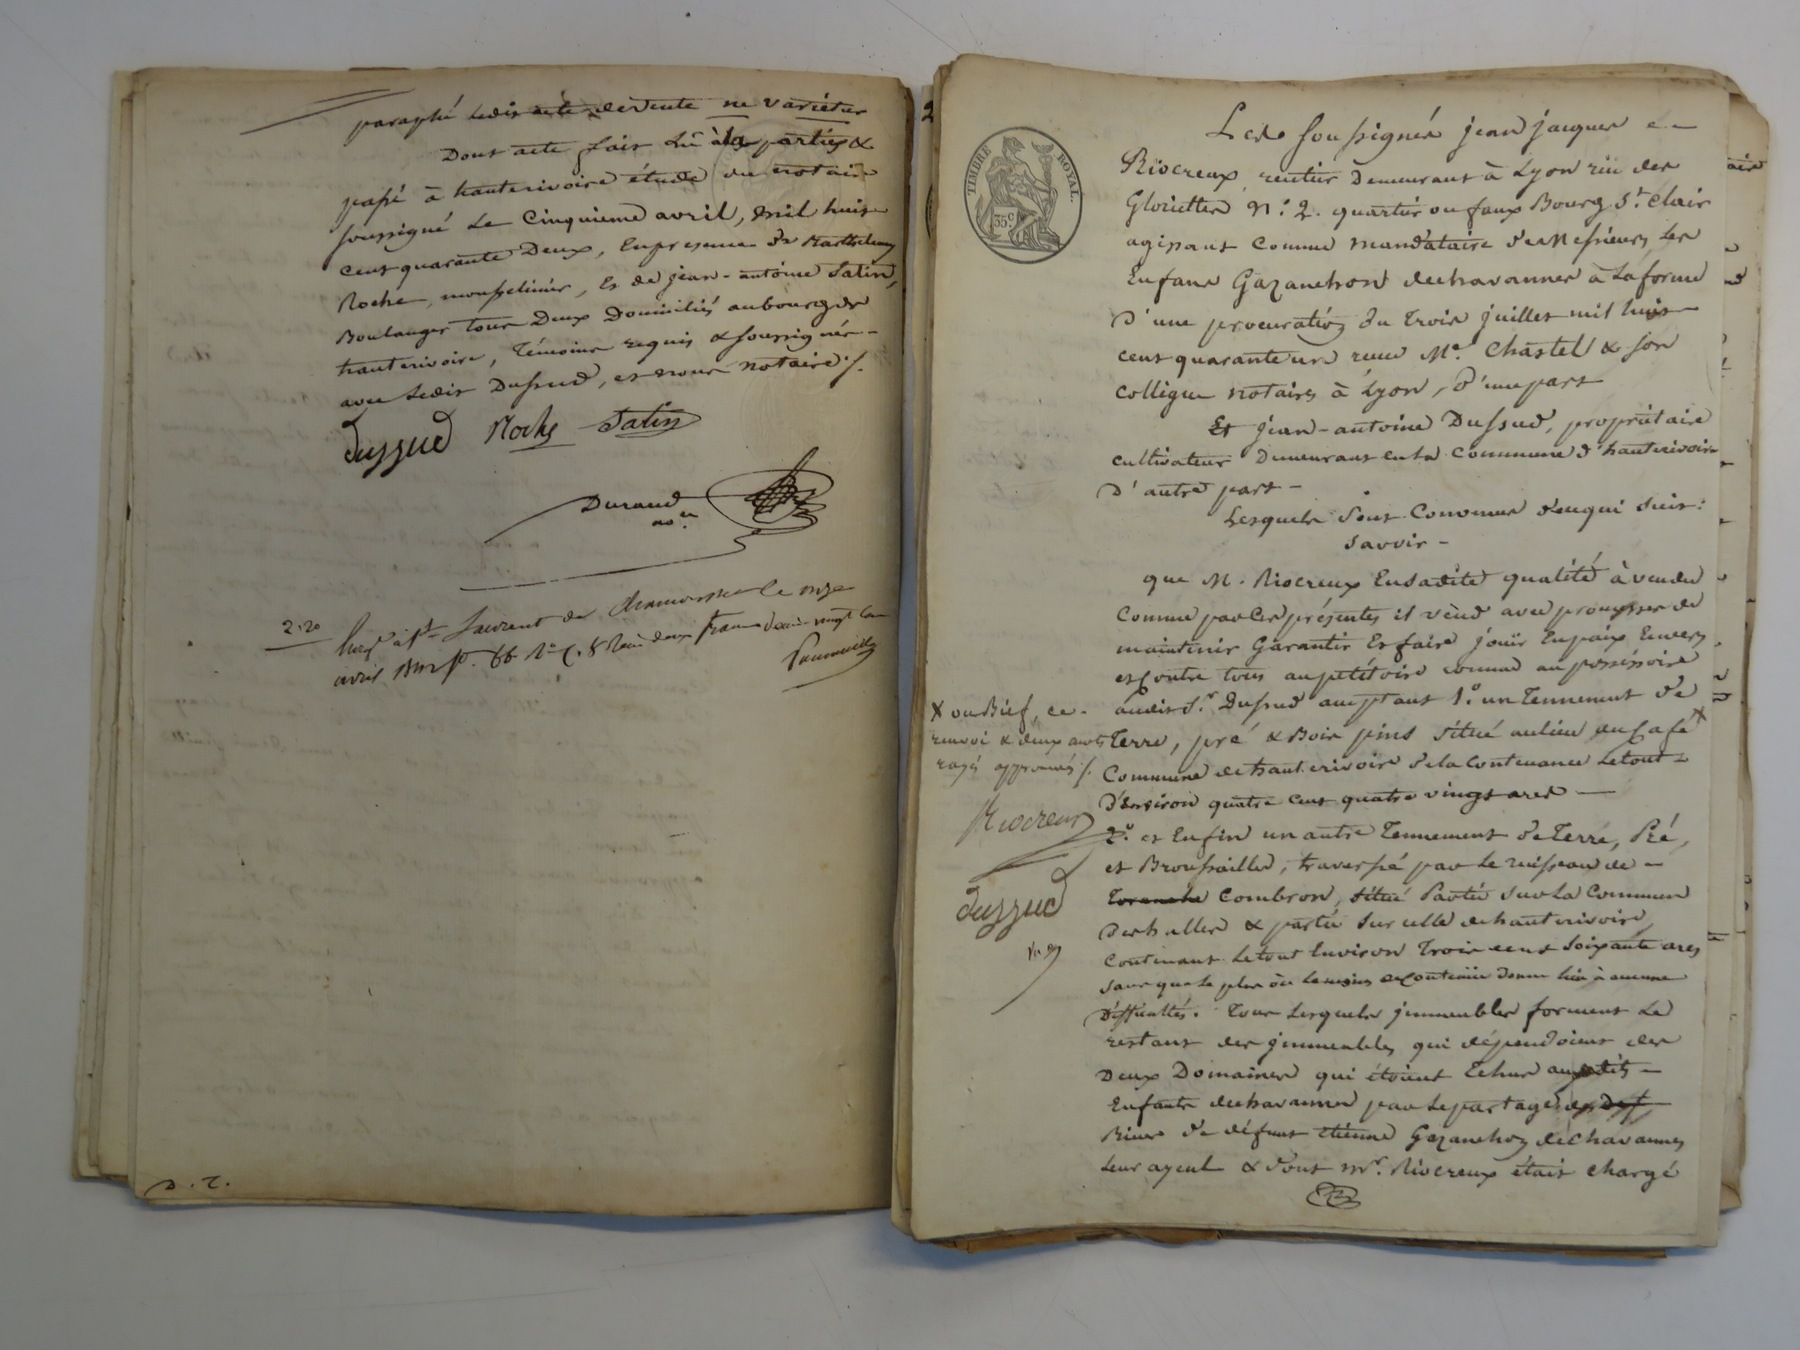 paraphé ledit acte de vente ne varietur
Dont acte fait Lû à la partie &
passé à hauterivoire étude du notaire
soussigné Le Cinquieme avril, mil huit
cent quarante Deux, En presence de Barthelemy
Roche, mousselinier, Et de jean-antoine Satin,
Boulanger tous Deux Domiciliés au bourg de
hauterivoire, Témoins requis & soussignés -
avec Ledit Dussud, et nous notaire ./.
dussud Roche Satin
Durand
no.re
2.20
St Laurent de Chamousset Le onze
avril
D. T.
TIMBRE ROYAL
35 c
Les soussignés jean jacques
Riocreux rentier Demeurant à Lyon rue des
Glorietter N.° 2. quartier ou faux Bourg St. Clair
agissant Comme mandataire de Messieurs Les
Enfans Gazanchon dechavannes à La forme
D'une procuration du trois juillet mil huit
cent quarante un reçue Me. Chastel & son
Collègue notaires à Lyon, D'une part
Et jean-antoine Dussud, propriétaire
cultivateur Demeurant en la Commune d'hauterivoire
D'autre part -
Lesquels sont Convenus de ce qui suit :
savoir -
que M. Riocreux En sa dite qualité à vendu
Comme par Ces présentes il vend avec promesse de
maintenir Garantir Et faire jouïr En paix Envers
et Contre tous au petitoire comme au possessoire
audit Sr. Dussud acceptant 1.° un Tennement de
X ou Bief, ce
renvoi & deux mots
rayés approuvés ./.
Terre, pré & Bois pins situé au lieu du Café X
Commune de hauterivoire de la Contenance Le tout
D'Environ quatre cent quatre vingt ares
Riocreux
2.° et Enfin un autre Tennement de Terre, Pré,
et Broussailles, traversé par Le ruisseau de
Toranche Combron, situé Partie sur La Commune
dussud
Des halles & partie sur celle de hauterivoire,
Contenant Le tout Environ Trois cent Soixante ares
sans que Le plus ou Le moins de Contenüe donne lieu à aucune
Difficultés. Tous Lesquels jmmeubles forment Le
restant des jmmeubles qui dépendoient des
Deux Domaines qui étoient Echus auxdits
Enfants dechavannes par Le partage des
Biens de défunt étienne Gazanchon dechavannes
Leur ayeul & dont Mr. Riocreux était chargé